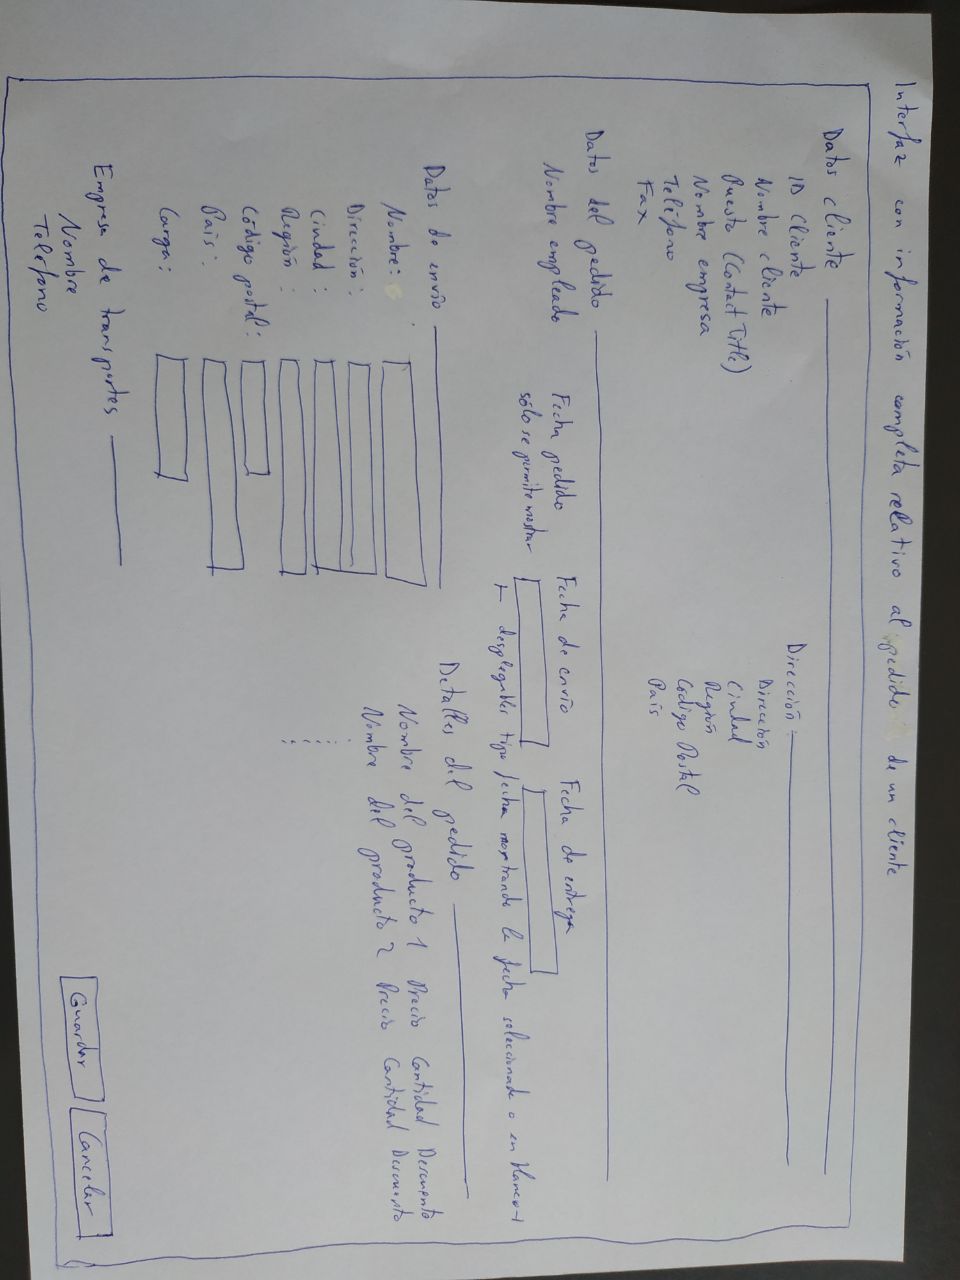 Interfaz con información completa relativo al pedido de un cliente
Datos cliente
ID cliente
Nombre cliente
Puesto (Contact Title)
Nombre empresa
Teléfono
Fax
Dirección:
Dirección
Ciudad
Región
Código Postal
País
Datos del pedido
Nombre empleado
Fecha pedido
sólo se permite mostrar
Fecha de envío
Fecha de entrega
desplegables tipo fecha mostrando la fecha seleccionada o en blanco
Datos de envío
Nombre:
Dirección:
Ciudad:
Región:
Código postal:
País:
Carga:
Detalles del pedido
Nombre del producto 1 Precio Cantidad Descuento
Nombre del producto 2 Precio Cantidad Descuento
Empresa de transportes
Nombre
Teléfono
Guardar
Cancelar